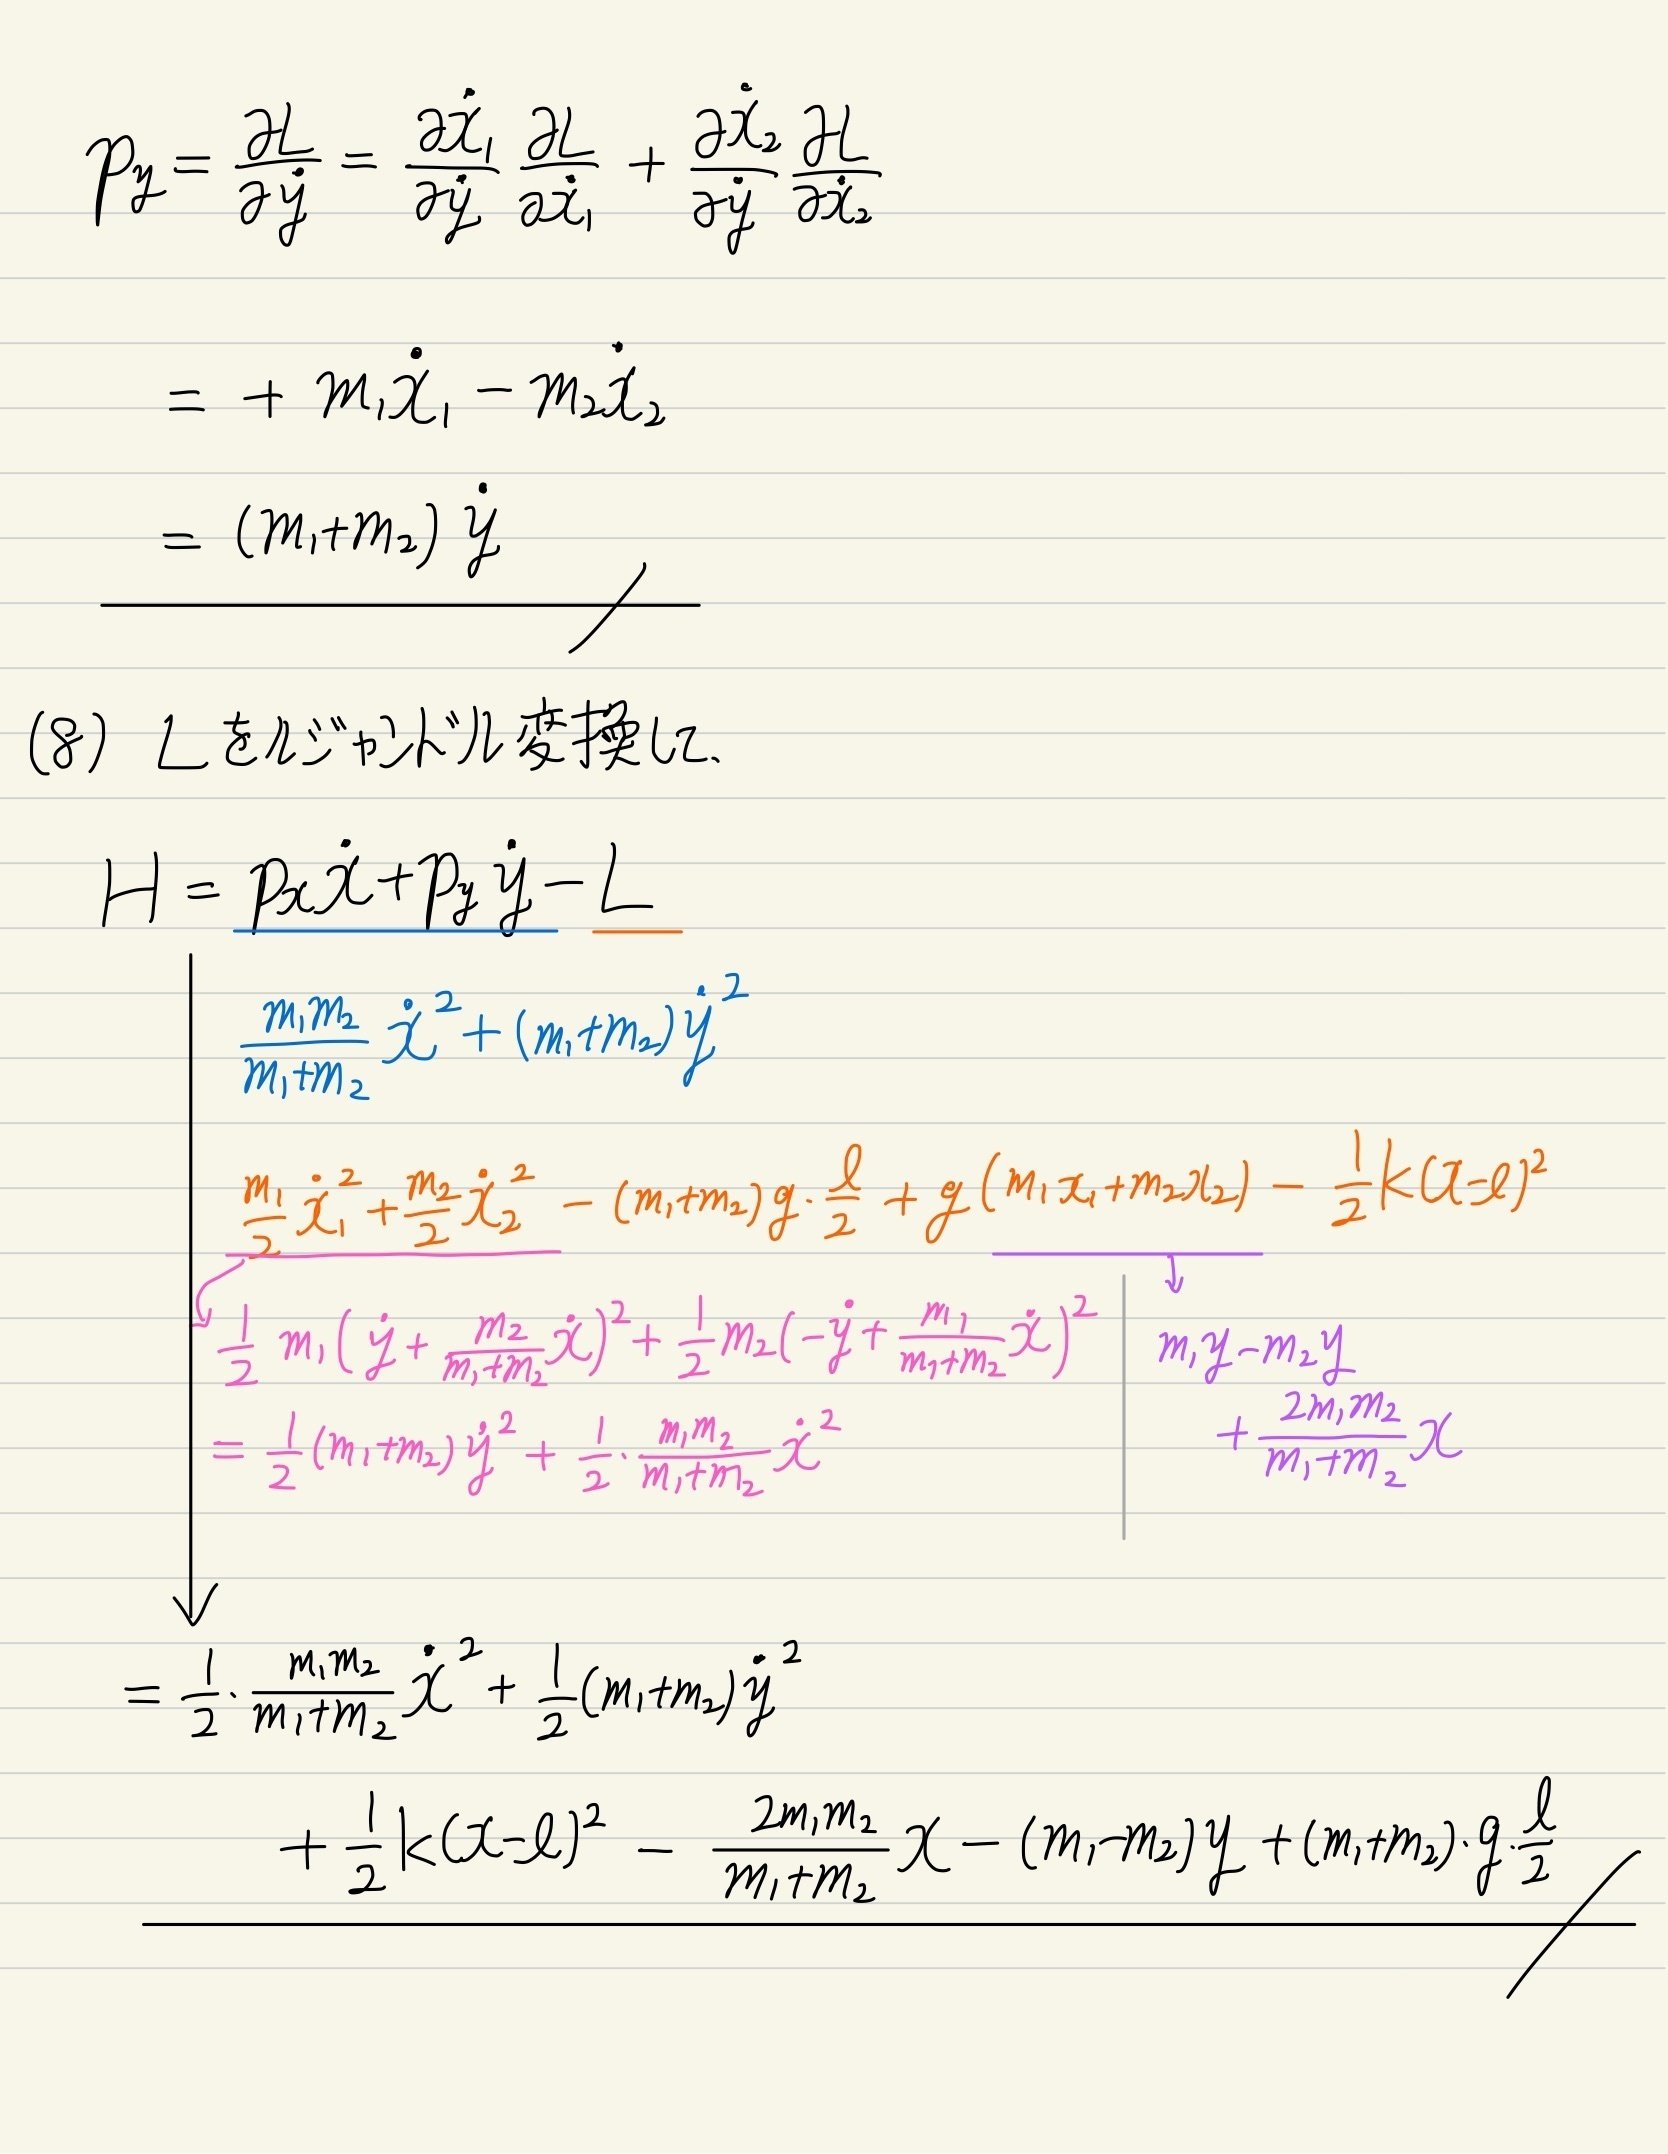 p_y = ∂L/∂ẏ = ∂ẋ₁/∂ẏ ∂L/∂ẋ₁ + ∂ẋ₂/∂ẏ ∂L/∂ẋ₂
= + m₁ẋ₁ − m₂ẋ₂
= (m₁+m₂) ẏ
(8) Lをルジャンドル変換して、
H = pₓẋ + p_y ẏ − L
m₁m₂/(m₁+m₂) ẋ² + (m₁+m₂) ẏ²
m₁/2 ẋ₁² + m₂/2 ẋ₂² − (m₁+m₂)g·l/2 + g(m₁x₁+m₂x₂) − 1/2 k(x−l)²
1/2 m₁(ẏ + m₂/(m₁+m₂) ẋ)² + 1/2 m₂(−ẏ + m₁/(m₁+m₂) ẋ)²
= 1/2 (m₁+m₂) ẏ² + 1/2 · m₁m₂/(m₁+m₂) ẋ²
m₁y − m₂y
+ 2m₁m₂/(m₁+m₂) x
= 1/2 · m₁m₂/(m₁+m₂) ẋ² + 1/2 (m₁+m₂) ẏ²
+ 1/2 k(x−l)² − 2m₁m₂/(m₁+m₂) x − (m₁−m₂)y + (m₁+m₂)·g·l/2